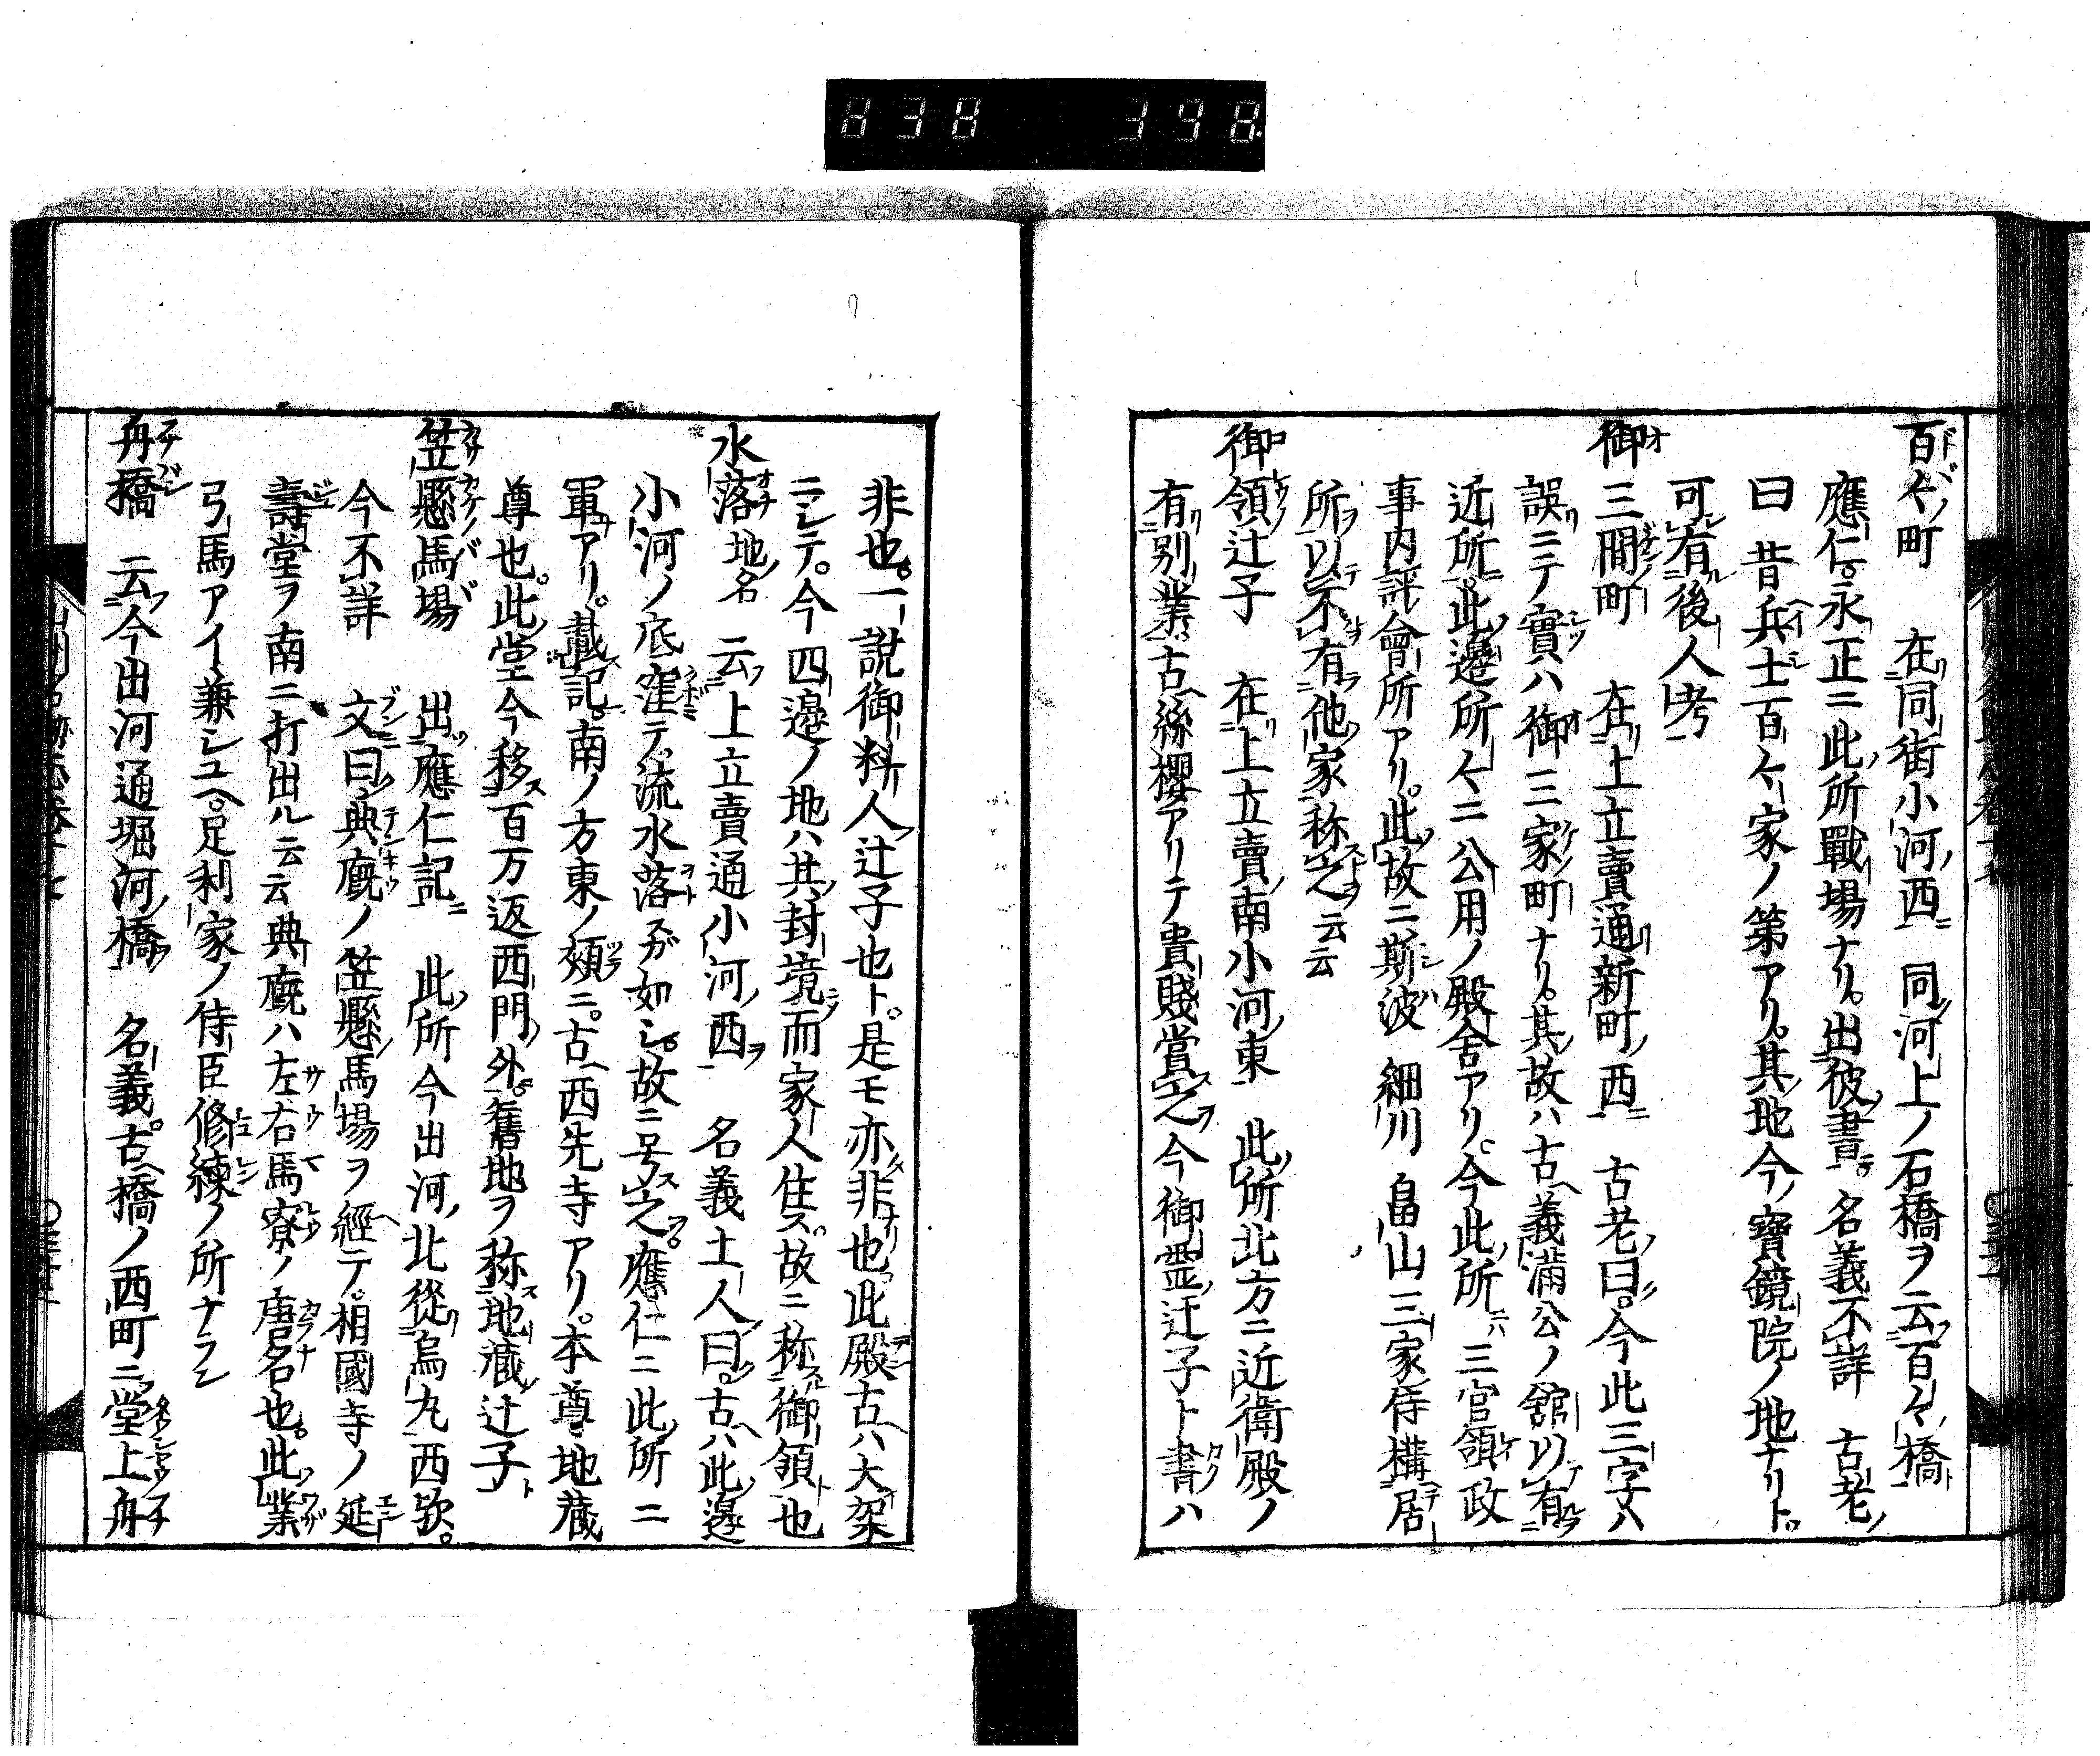 438 398
百々町 在同街小河西 同河上ノ石橋ヲ云百々橋
應仁。永正ニ此所戰場ナリ。出彼書。名義不詳 古老
曰 昔兵士百々家ノ第アリ。其地今ノ寶鏡院ノ地ナリト。
可有後人考
御三間町 在上立賣通新町西 古老曰。今此三字ハ
誤ニテ實ハ御三家町ナリ。其故ハ古義滿公ノ舘以有
近所。此邊所々ニ公用ノ殿舎アリ。今此所ニハ三官領政
事内評會所アリ。此故ニ斯波 細川 畠山三家侍構居
所以不有他家称之云云
御領辻子 在上立賣南小河東 此所北方ニ近衛殿ノ
有別業古絲櫻アリテ貴賤賞之今御霊辻子ト書ハ
非也。一說御料人辻子也ト。是モ亦非也此殿古ハ大架
ニシテ。今四邊ノ地ハ其封境而家人住ス。故ニ称御領也
水落地名 云上立賣通小河西 名義土人曰。古ハ此邊
小河ノ底窪テ。流水落ルガ如シ。故ニ号之。應仁ニ此所ニ
軍アリ。載記。南ノ方東ノ頰ニ。古西先寺アリ。本尊地藏
尊也。此堂今移百万返西門外。舊地ヲ称地藏辻子
笠懸馬場 出應仁記 此所今出河北從烏丸西欤。
今不詳 文曰典廐ノ笠懸馬場ヲ經テ。相國寺ノ延
壽堂ヲ南ニ打出ル云云典廐ハ左右馬寮ノ唐名也。此業
弓馬アイ兼シユヘ。足利家ノ侍臣修練ノ所ナラン
舟橋 云今出河通堀河橋 名義。古橋ノ西町ニ堂上舟